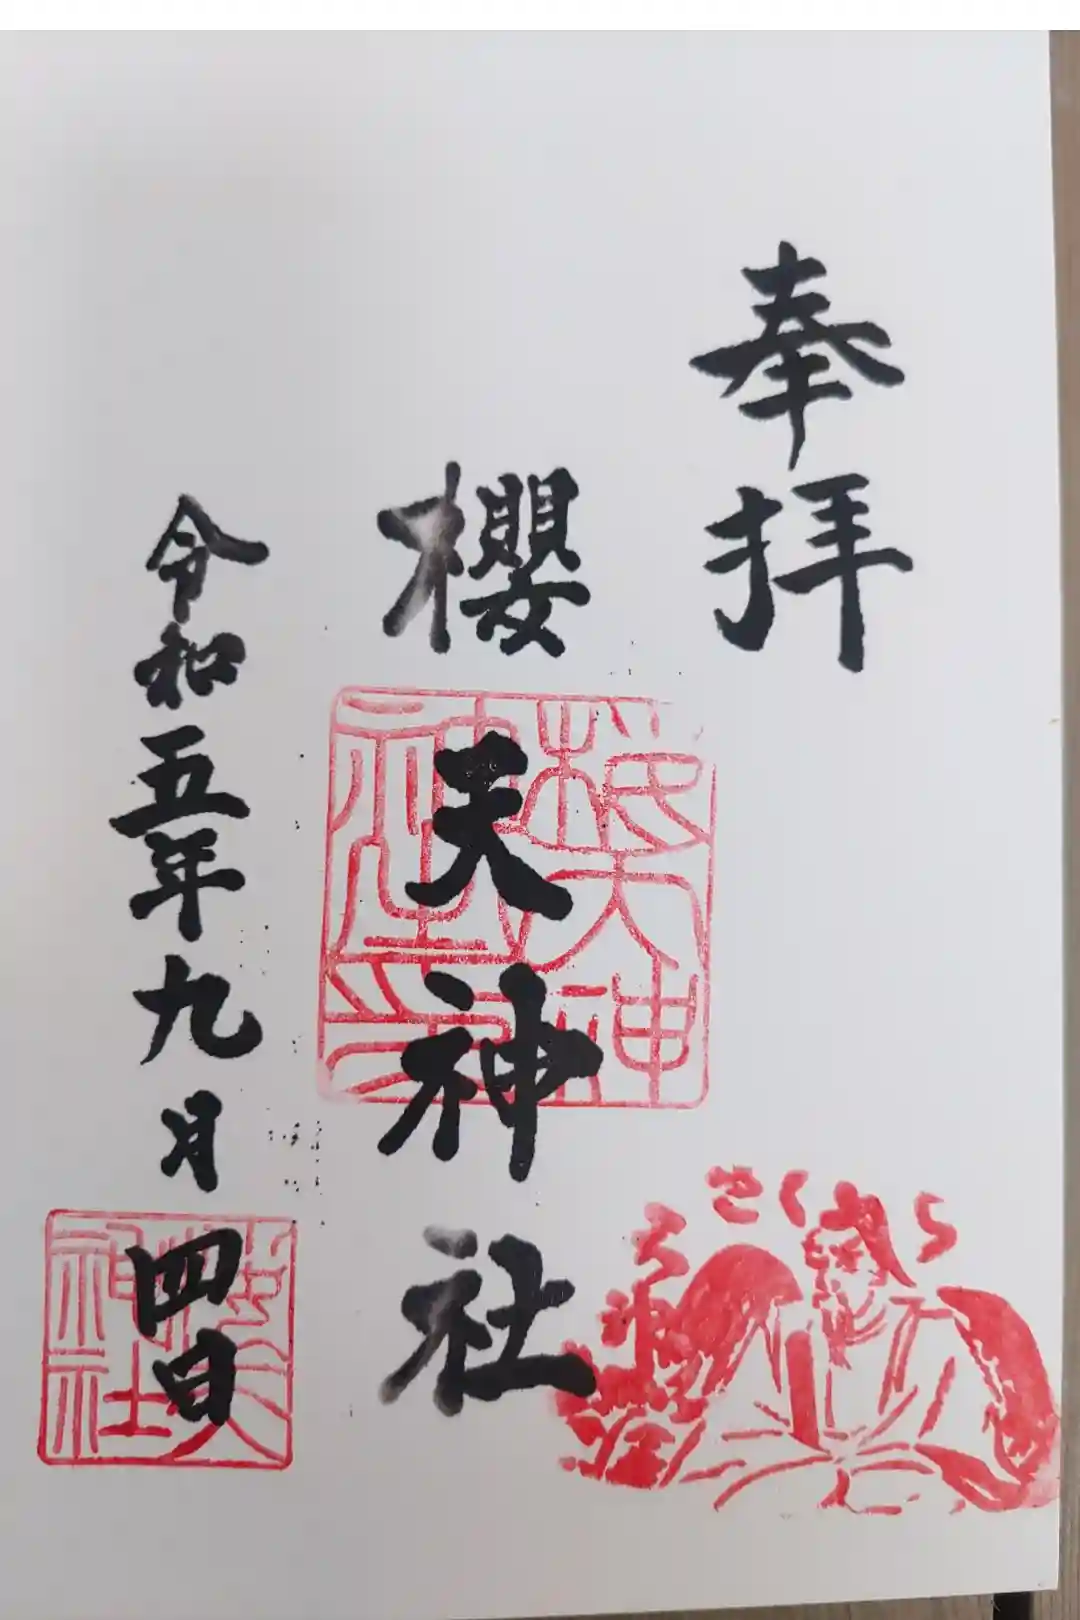 奉拝
櫻天神社
令和五年九月四日
櫻天神社印
櫻天神社
さくら